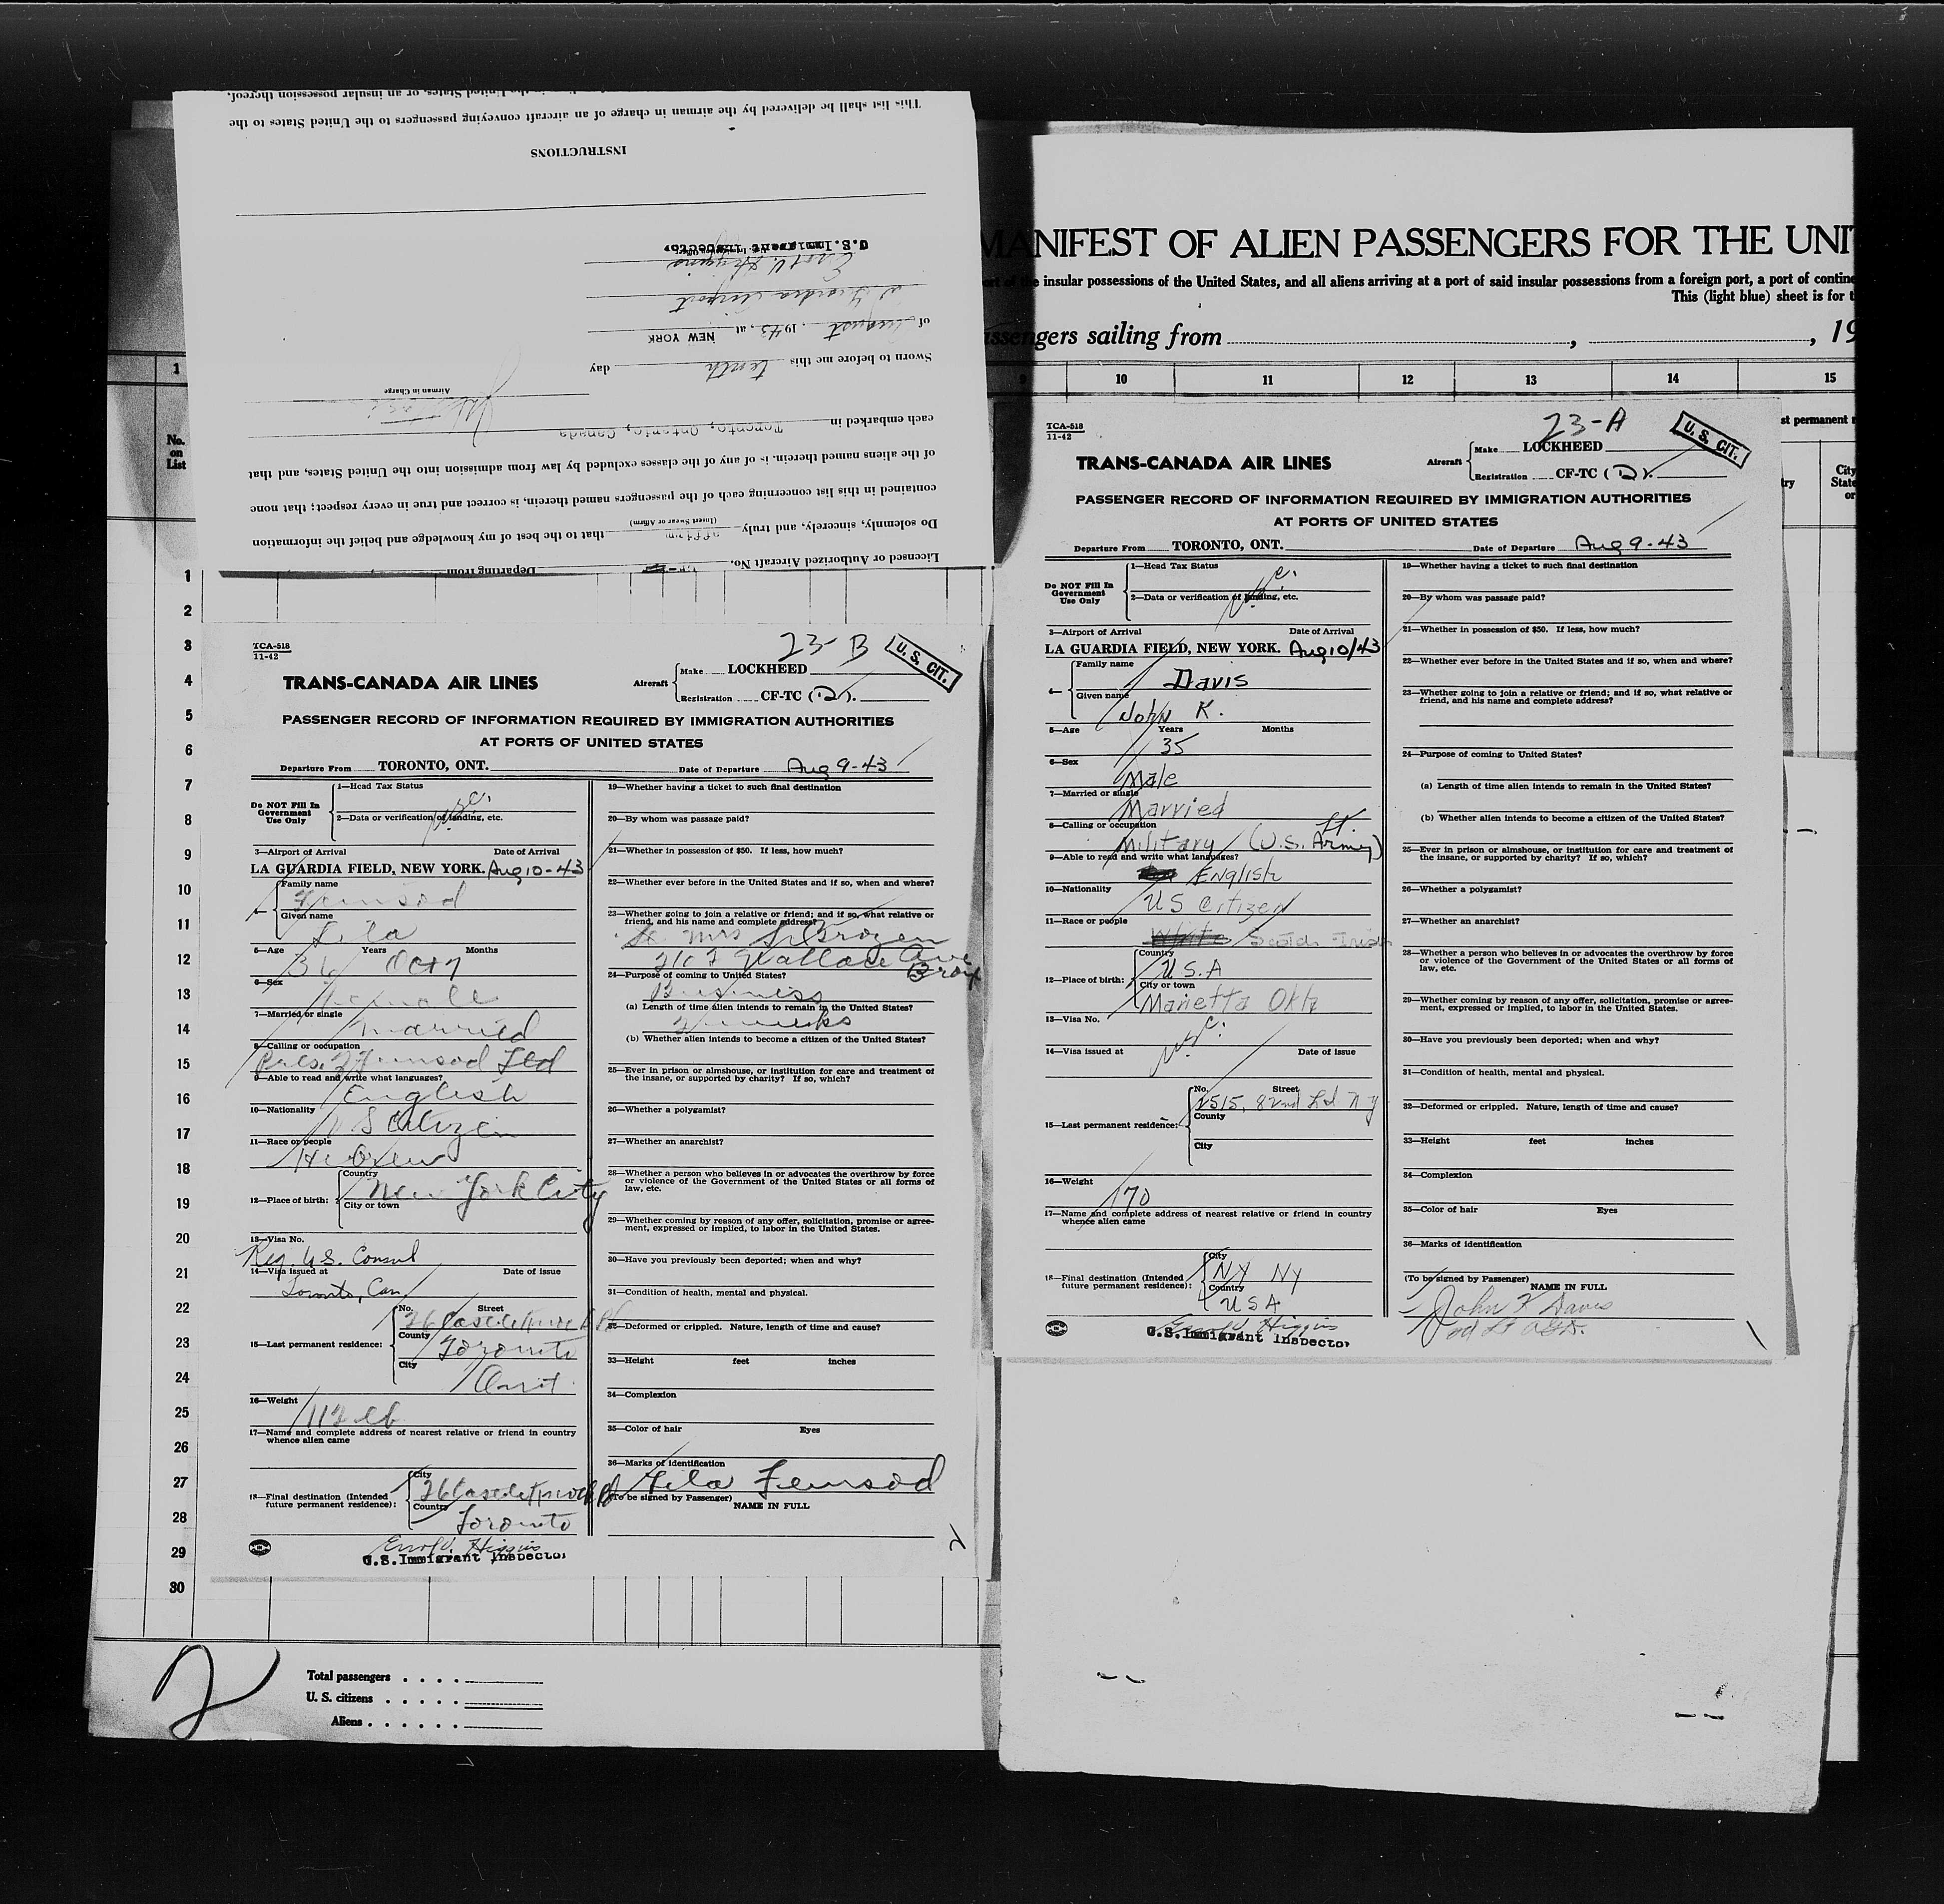 This list shall be delivered by the airman in charge of an aircraft conveying passengers to the United States to the
the United States, or an insular possession thereof.
INSTRUCTIONS
U.S. Immigrant Inspector
Errol V. Higgins
La Guardia Airport
of August, 1943, at NEW YORK
Sworn to before me this tenth day
Airman in Charge
each embarked in Toronto, Ontario, Canada
of the aliens named therein. is of any of the classes excluded by law from admission into the United States, and that
contained in this list concerning each of the passengers named therein, is correct and true in every respect; that none
(Insert Swear or Affirm)
Do solemnly, sincerely, and truly affirm that to the best of my knowledge and belief the information
Licensed or Authorized Aircraft No. Departing from
1
No.
on
List
1
2
3
4
5
6
7
8
9
10
11
12
13
14
15
16
17
18
19
20
21
22
23
24
25
26
27
28
29
30
TCA-518
11-42
23-B
U. S. CIT.
TRANS-CANADA AIR LINES
Aircraft
Make LOCKHEED
Registration CF-TC (D).
PASSENGER RECORD OF INFORMATION REQUIRED BY IMMIGRATION AUTHORITIES
AT PORTS OF UNITED STATES
Departure From TORONTO, ONT. Date of Departure Aug 9-43
Do NOT Fill In
Government
Use Only
1—Head Tax Status
2—Data or verification of landing, etc.
3—Airport of Arrival Date of Arrival
LA GUARDIA FIELD, NEW YORK. Aug 10-43
4—
Family name
Given name
Lila
5—Age Years Months
36 Oct 7
6—Sex
Female
7—Married or single
Married
8—Calling or occupation
Pres. Ltd
9—Able to read and write what languages?
English
10—Nationality
U S Citizen
11—Race or people
Hebrew
12—Place of birth:
Country
New York City
City or town
13—Visa No.
Reg. U.S. Consul
14—Visa issued at Date of issue
Toronto, Can.
15—Last permanent residence:
No. Street
County
Toronto
City
Ont.
16—Weight
112 lb
17—Name and complete address of nearest relative or friend in country
whence alien came
18—Final destination (Intended
future permanent residence):
City
Country
Toronto
Errol V. Higgins
U.S. Immigrant Inspector
19—Whether having a ticket to such final destination
20—By whom was passage paid?
21—Whether in possession of $50. If less, how much?
22—Whether ever before in the United States and if so, when and where?
23—Whether going to join a relative or friend; and if so, what relative or
friend, and his name and complete address?
Mrs
Wallace Ave
Bronx
24—Purpose of coming to United States?
Business
(a) Length of time alien intends to remain in the United States?
2 weeks
(b) Whether alien intends to become a citizen of the United States?
25—Ever in prison or almshouse, or institution for care and treatment of
the insane, or supported by charity? If so, which?
26—Whether a polygamist?
27—Whether an anarchist?
28—Whether a person who believes in or advocates the overthrow by force
or violence of the Government of the United States or all forms of
law, etc.
29—Whether coming by reason of any offer, solicitation, promise or agree-
ment, expressed or implied, to labor in the United States.
30—Have you previously been deported; when and why?
31—Condition of health, mental and physical.
32—Deformed or crippled. Nature, length of time and cause?
33—Height feet inches
34—Complexion
35—Color of hair Eyes
36—Marks of identification
Lila
(To be signed by Passenger)
NAME IN FULL
2
Total passengers
U. S. citizens
Aliens
MANIFEST OF ALIEN PASSENGERS FOR THE UNI
insular possessions of the United States, and all aliens arriving at a port of said insular possessions from a foreign port, a port of contine
This (light blue) sheet is for t
assengers sailing from , , 19
9 10 11 12 13 14 15
st permanent r
ry
City
State
or
TCA-518
11-42
23-A
U. S. CIT.
TRANS-CANADA AIR LINES
Aircraft
Make LOCKHEED
Registration CF-TC (D).
PASSENGER RECORD OF INFORMATION REQUIRED BY IMMIGRATION AUTHORITIES
AT PORTS OF UNITED STATES
Departure From TORONTO, ONT. Date of Departure Aug 9-43
Do NOT Fill In
Government
Use Only
1—Head Tax Status
2—Data or verification of landing, etc.
3—Airport of Arrival Date of Arrival
LA GUARDIA FIELD, NEW YORK. Aug 10/43
4—
Family name
Davis
Given name
John K.
5—Age Years Months
35
6—Sex
Male
7—Married or single
Married
8—Calling or occupation
Military (U.S. Army) Lt.
9—Able to read and write what languages?
English
10—Nationality
US Citizen
11—Race or people
White Scotch-Irish
12—Place of birth:
Country
U.S.A
City or town
Marietta Okla
13—Visa No.
14—Visa issued at Date of issue
15—Last permanent residence:
No. Street
County
City
16—Weight
170
17—Name and complete address of nearest relative or friend in country
whence alien came
18—Final destination (Intended
future permanent residence):
City
NY NY
Country
USA
Errol V. Higgins
U.S. Immigrant Inspector
19—Whether having a ticket to such final destination
20—By whom was passage paid?
21—Whether in possession of $50. If less, how much?
22—Whether ever before in the United States and if so, when and where?
23—Whether going to join a relative or friend; and if so, what relative or
friend, and his name and complete address?
24—Purpose of coming to United States?
(a) Length of time alien intends to remain in the United States?
(b) Whether alien intends to become a citizen of the United States?
25—Ever in prison or almshouse, or institution for care and treatment of
the insane, or supported by charity? If so, which?
26—Whether a polygamist?
27—Whether an anarchist?
28—Whether a person who believes in or advocates the overthrow by force
or violence of the Government of the United States or all forms of
law, etc.
29—Whether coming by reason of any offer, solicitation, promise or agree-
ment, expressed or implied, to labor in the United States.
30—Have you previously been deported; when and why?
31—Condition of health, mental and physical.
32—Deformed or crippled. Nature, length of time and cause?
33—Height feet inches
34—Complexion
35—Color of hair Eyes
36—Marks of identification
(To be signed by Passenger)
NAME IN FULL
John K Davis